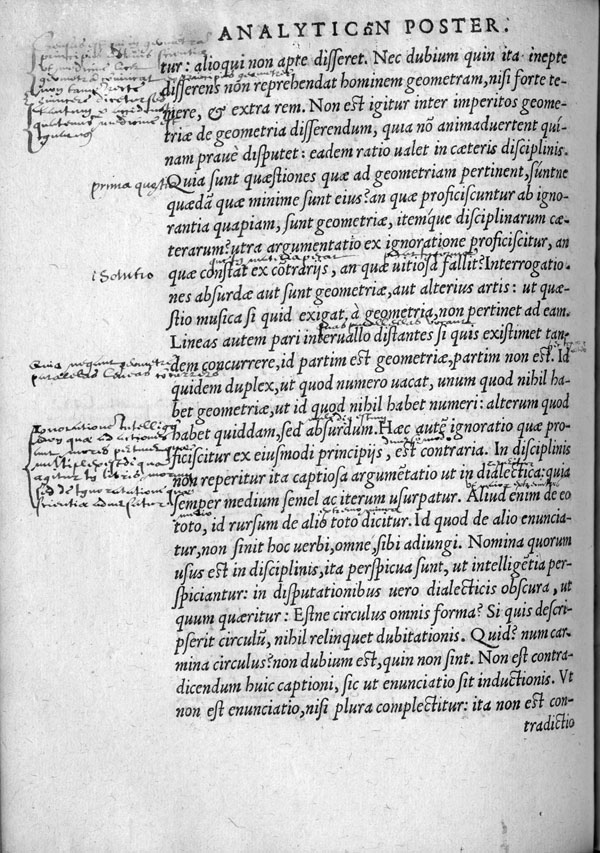 ANALYTICῶN POSTER.
tur: alioqui non apte disseret. Nec dubium quin ita inepte
disserens non reprehendat hominem geometram, nisi forte te-
mere, & extra rem. Non est igitur inter imperitos geome-
triæ de geometria disserendum, quia nō animaduertent qui-
nam prauè disputet: eadem ratio ualet in cæteris disciplinis.
prima quæstio
Quia sunt quæstiones quæ ad geometriam pertinent, súntne
quædā quæ minime sunt eius? an quæ proficiscuntur ab igno-
rantia quapiam, sunt geometriæ, itemque disciplinarum cæ-
terarum? utra argumentatio ex ignoratione proficiscitur, an
i Solutio
quæ constat ex cōtrarijs, an quæ uitiosa fallit? Interrogatio-
nes absurdæ aut sunt geometriæ, aut alterius artis: ut quæ-
stio musica si quid exigat, à geometria, non pertinet ad eam.
Lineas autem pari interuallo distantes si quis existimet tan-
dem concurrere, id partim est geometriæ, partim non est. Id
quidem duplex, ut quod numero uacat, unum quod nihil ha-
bet geometriæ, ut id quod nihil habet numeri: alterum quod
habet quiddam, sed absurdum. Hæc autē ignoratio quæ pro-
ficiscitur ex eiusmodi principijs, est contraria. In disciplinis
non reperitur ita captiosa argumētatio ut in dialectica: quia
semper medium semel ac iterum usurpatur. Aliud enim de eo
toto, id rursum de alio toto dicitur. Id quod de alio enuncia-
tur, non sinit hoc uerbi, omne, sibi adiungi. Nomina quorum
usus est in disciplinis, ita perspicua sunt, ut intelligētia per-
spiciantur: in disputationibus uero dialecticis obscura, ut
quum quæritur: Estne circulus omnis forma? Si quis descri-
pserit circulū, nihil relinquet dubitationis. Quid? num car-
mina circulus? non dubium est, quin non sint. Non est contra-
dicendum huic captioni, sic ut enunciatio sit inductionis. Vt
non est enunciatio, nisi plura complectitur: ita non est con-
tradictio